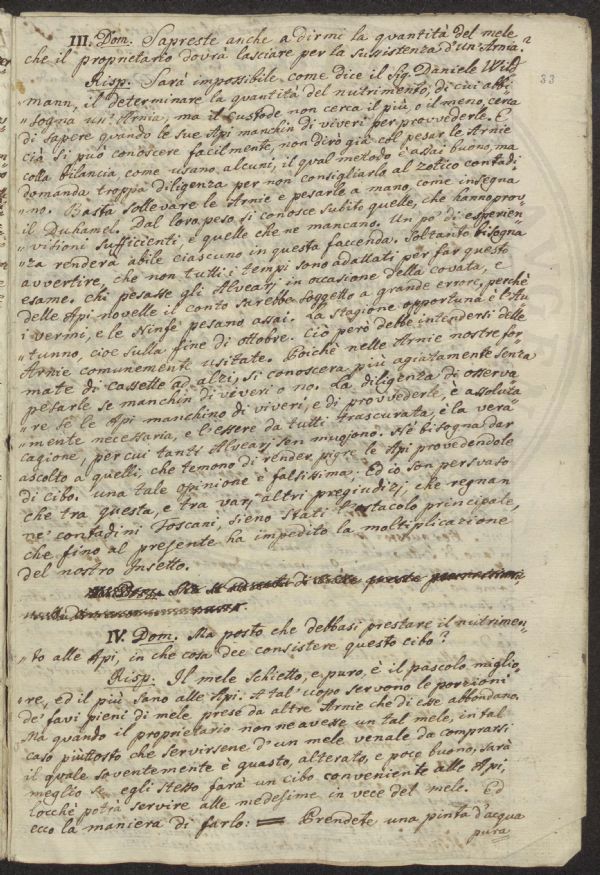 III. Dom. Sapreste anche a dirmi la quantità del mele
che il proprietario dovrà lasciare per la sussistenza d'un'Arnia?
33
Risp. Sarà impossibile come dice il Sig. Daniele Wild
mann, il determinare la quantità del nutrimento, di cui abbi
"sogna un'Arnia, ma il Custode non cerca il più, o il meno, cerca
di sapere quando le sue Api manchin di viveri per provvederle. E
ciò si può conoscere facilmente, non dirò già col pesar le Arnie
colla bilancia come usano alcuni, il qual metodo è assai buono, ma
domanda troppa diligenza per non consigliarlo al zotico contadi
"no. Basta sollevare le Arnie e pesarle a mano, come insegna
il Duhamel. Dal loro peso si conosce subito quelle, che hanno prov
"visioni sufficienti, e quelle che ne mancano. Un po' di esperien
"za renderà abile ciascuno in questa faccenda. Soltanto bisogna
avvertire, che non tutti i tempi sono adattati per far questo
esame. Chi pesasse gli Alvearj in occasione della covata, e
delle Api novelle il conto sarebbe soggetto a grande errore, perchè
i vermi, e le Ninfe pesano assai. La stagione opportuna è l'Au
"tunno, cioè sulla fine di Ottobre. Ciò però debbe intendersi delle
Arnie comunemente usitate. Poichè nelle Arnie nostre for
mate di cassette ad alzi, si conoscerà più agiatamente senza
pesarle se manchin di viveri o no. La diligenza di osserva
"re se le Api manchino di viveri, e di provvederle, è assoluta
"mente necessaria, e l'essere da tutti trascurata, è la vera
cagione, per cui tanti Alvearj sen muojono. Nè bisogna dar
ascolto a quelli, che temono di render pigre le Api provedendole
di cibo. una tale opinione è falsissima; Ed io son persuaso
che tra questa, e tra varj altri pregiudizj, che regnan
ne' contadini Toscani, sieno stati l'ostacolo principale,
che fino al presente ha impedito la moltiplicazione
del nostro Insetto.
IV. Dom. Ma posto che debbasi prestare il nutrimen
"to alle Api, in che cosa dee consistere questo cibo?
Risp. Il mele schietto, e puro, è il pascolo miglio
"re, ed il più sano alle Api. A tal'uopo servono le porzioni
de' favi pieni di mele prese da altre Arnie che di esse abbondano.
Ma quando il proprietario non ne avesse un tal mele, in tal
caso piuttosto che servirsene d'un mele venale da comprarsi
il quale soventemente è guasto, alterato, e poco buono, sarà
meglio se egli stesso farà un cibo conveniente alle Api,
locchè potrà servire alle medesime in vece del mele. Ed
ecco la maniera di farlo: = Prendete una pinta d'acqua
pura